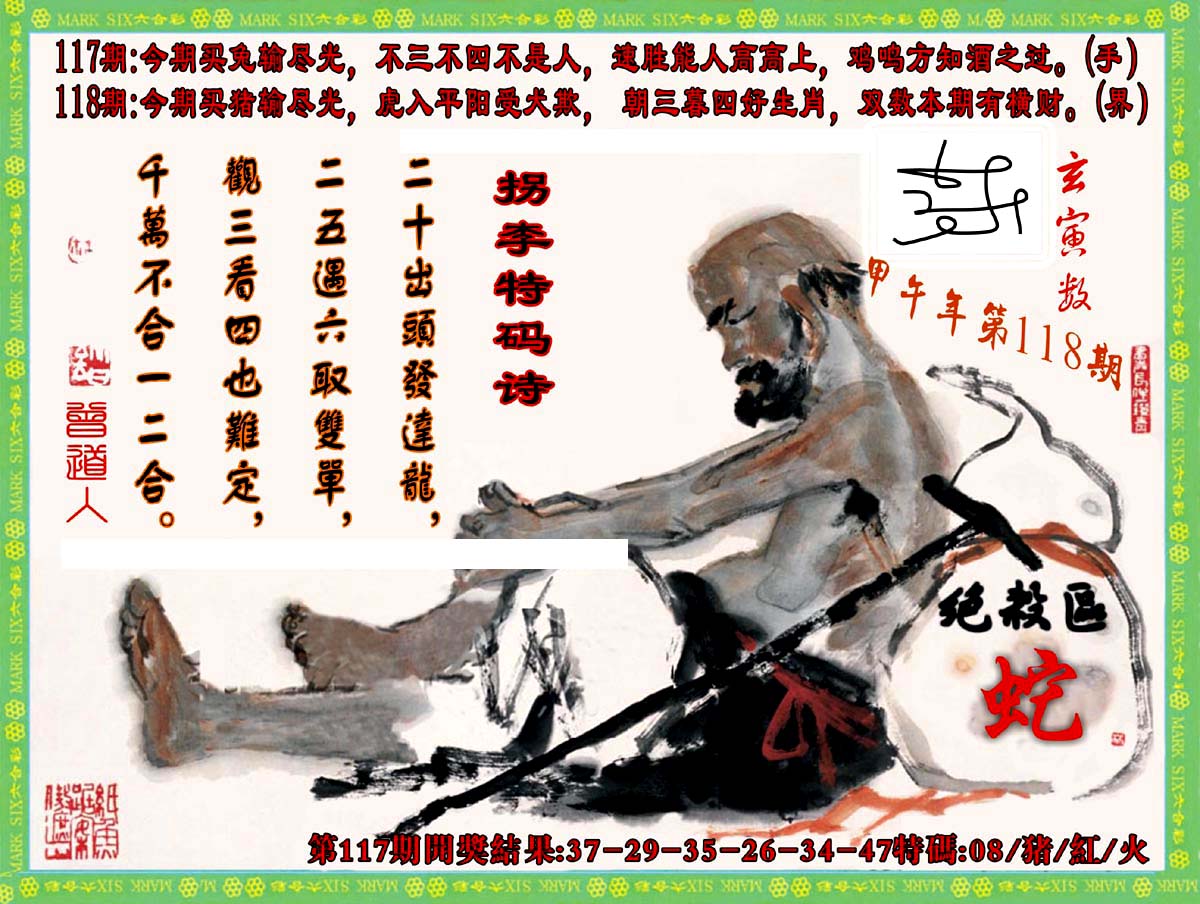 MARK SIX六合彩
117期:今期买兔输尽光，不三不四不是人，速胜能人高高上，鸡鸣方知酒之过。(手)
118期:今期买猪输尽光，虎入平阳受犬欺， 朝三暮四好生肖，双数本期有横财。(界)
玄寅数
甲午年第118期
拐李特码诗
二十出頭發達龍，
二五遇六取雙單，
觀三看四也難定，
千萬不合一二合。
曾道人
绝殺區
蛇
第117期開奬結果:37-29-35-26-34-47特碼:08/猪/紅/火